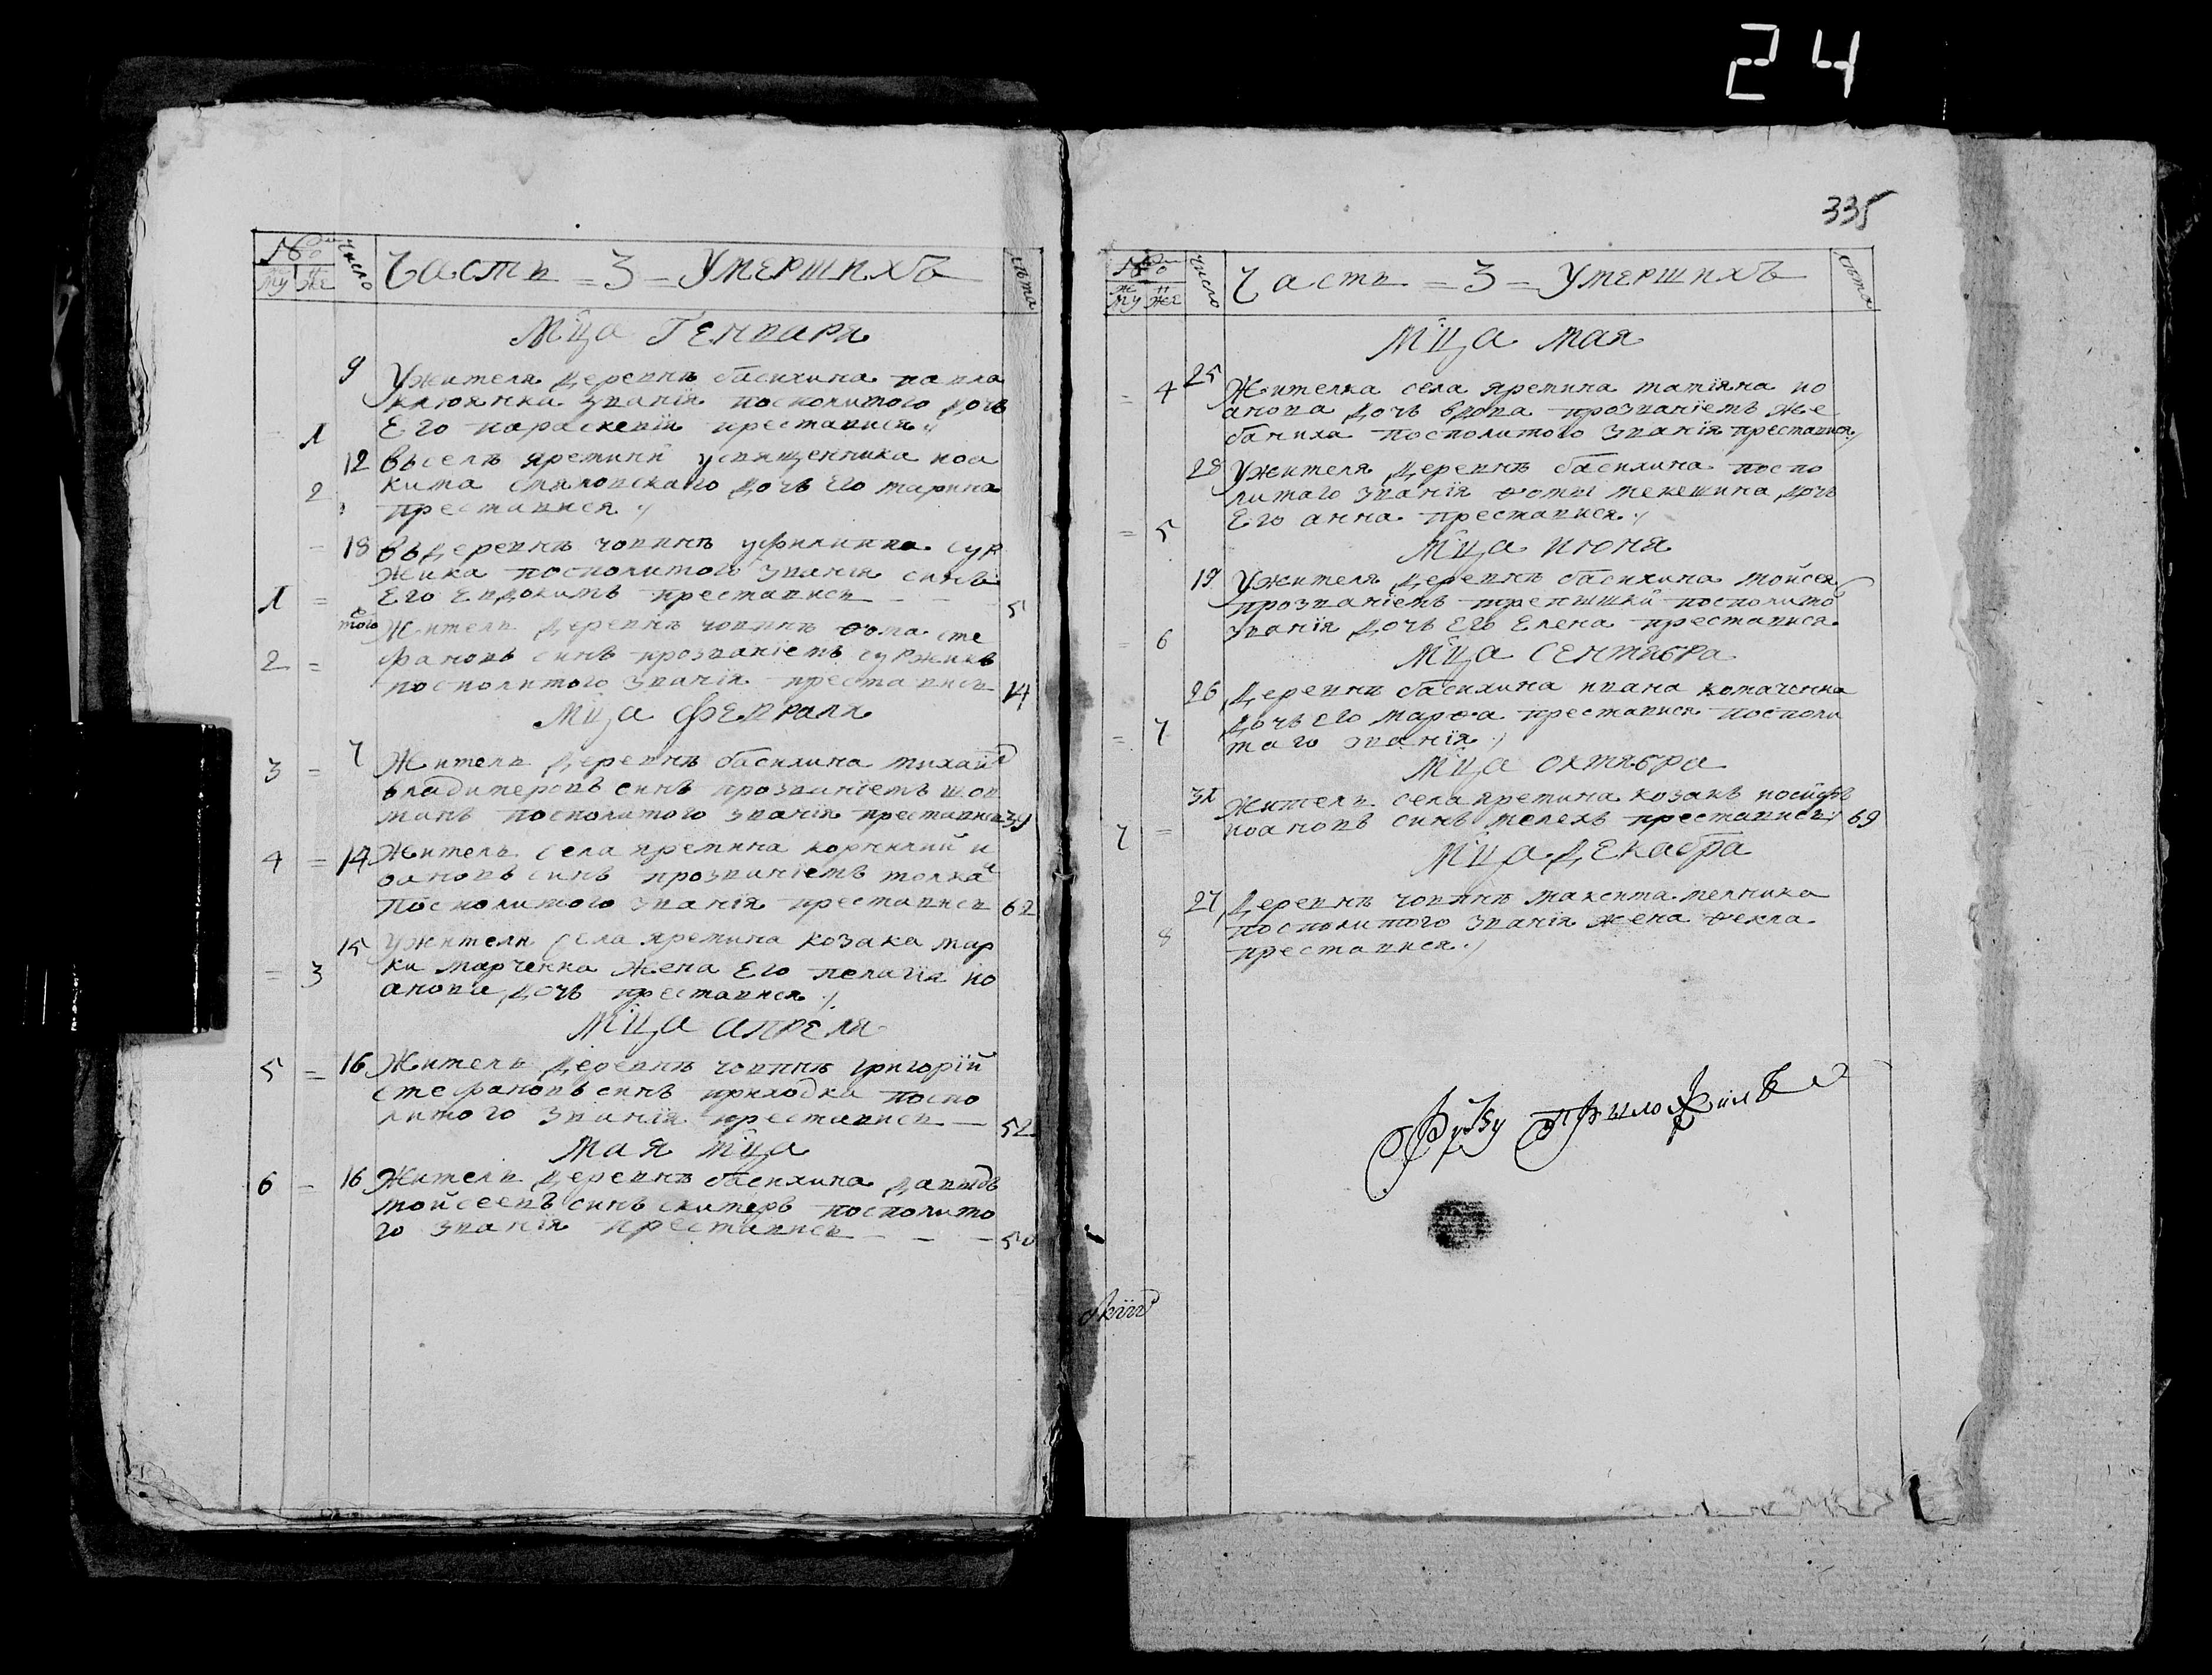 24
№ число Часть = 3 = Умершихъ лѣта
му же
Мца Генваря
9 Ужителя деревнѣ басихина павла
клюянки званія посполитого дочь
1 Его параскевія преставися
12 Въселѣ яремини усвященника иоа
2 кима смяловскаго дочь его марина
преставися
= 18 Въдеревнѣ човпнѣ уфилиппа сур
жика посполитого званія синъ
1 = Его Евдокимъ преставись 5
того Житель деревнѣ човпнѣ ѳома сте
2 = фановъ синъ прозванїемъ суржикъ
посполитого званїя преставись 14
Мца февраля
3 = 7 Житель деревнѣ басихина михаил
владимеровъ синъ прозванїемъ шов
манъ посполитого званїя преставись 39
4 = 14 Житель села яремина корнилий и
оановъ синъ прозванїемъ толкач
посполитого званїя преставись 62
15 Ужителя села яремина козака мар
= 3 ки марченка жена Его пелагїя ио
анова дочь преставися
Мца апреля
5 = 16 Житель деревнѣ човпнѣ григорїй
стефановъ синъ приходка поспо
литого званїя преставись 52
Мая мца
6 - 16 Житель деревнѣ басихина давыдъ
мойсеевъ синъ скитеръ посполито
го званїя преставись - - - 50
335
№ число Часть = 3 = Умершихъ лѣта
му же
Мца мая
= 4 25 Жителка села яремина татїяна ио
анова дочь вдова прозванїемъ же
баниха посполитого званїя преставися
28 Ужителя деревнѣ басихина поспо
литаго званїя ѳомы мекешина дочь
= 5 Его анна преставися
Мца июня
19 Ужителя деревнѣ басихина мойсея
прозванїемъ посполито
= 6 званїя дочь Его Елена преставися
Мца Сентября
26 деревнѣ басихина ивана комаченка
= 7 дочь его марѳа преставися посполи
таго званїя
Мца октября
31 Житель села яремина козакъ иосифъ
7 = иоановъ синъ мелехъ преставись 69
Мца декабра
27 деревнѣ човпнѣ максима мелника
посполитого званїя жена ѳекла
8 преставися
руку приложилъ